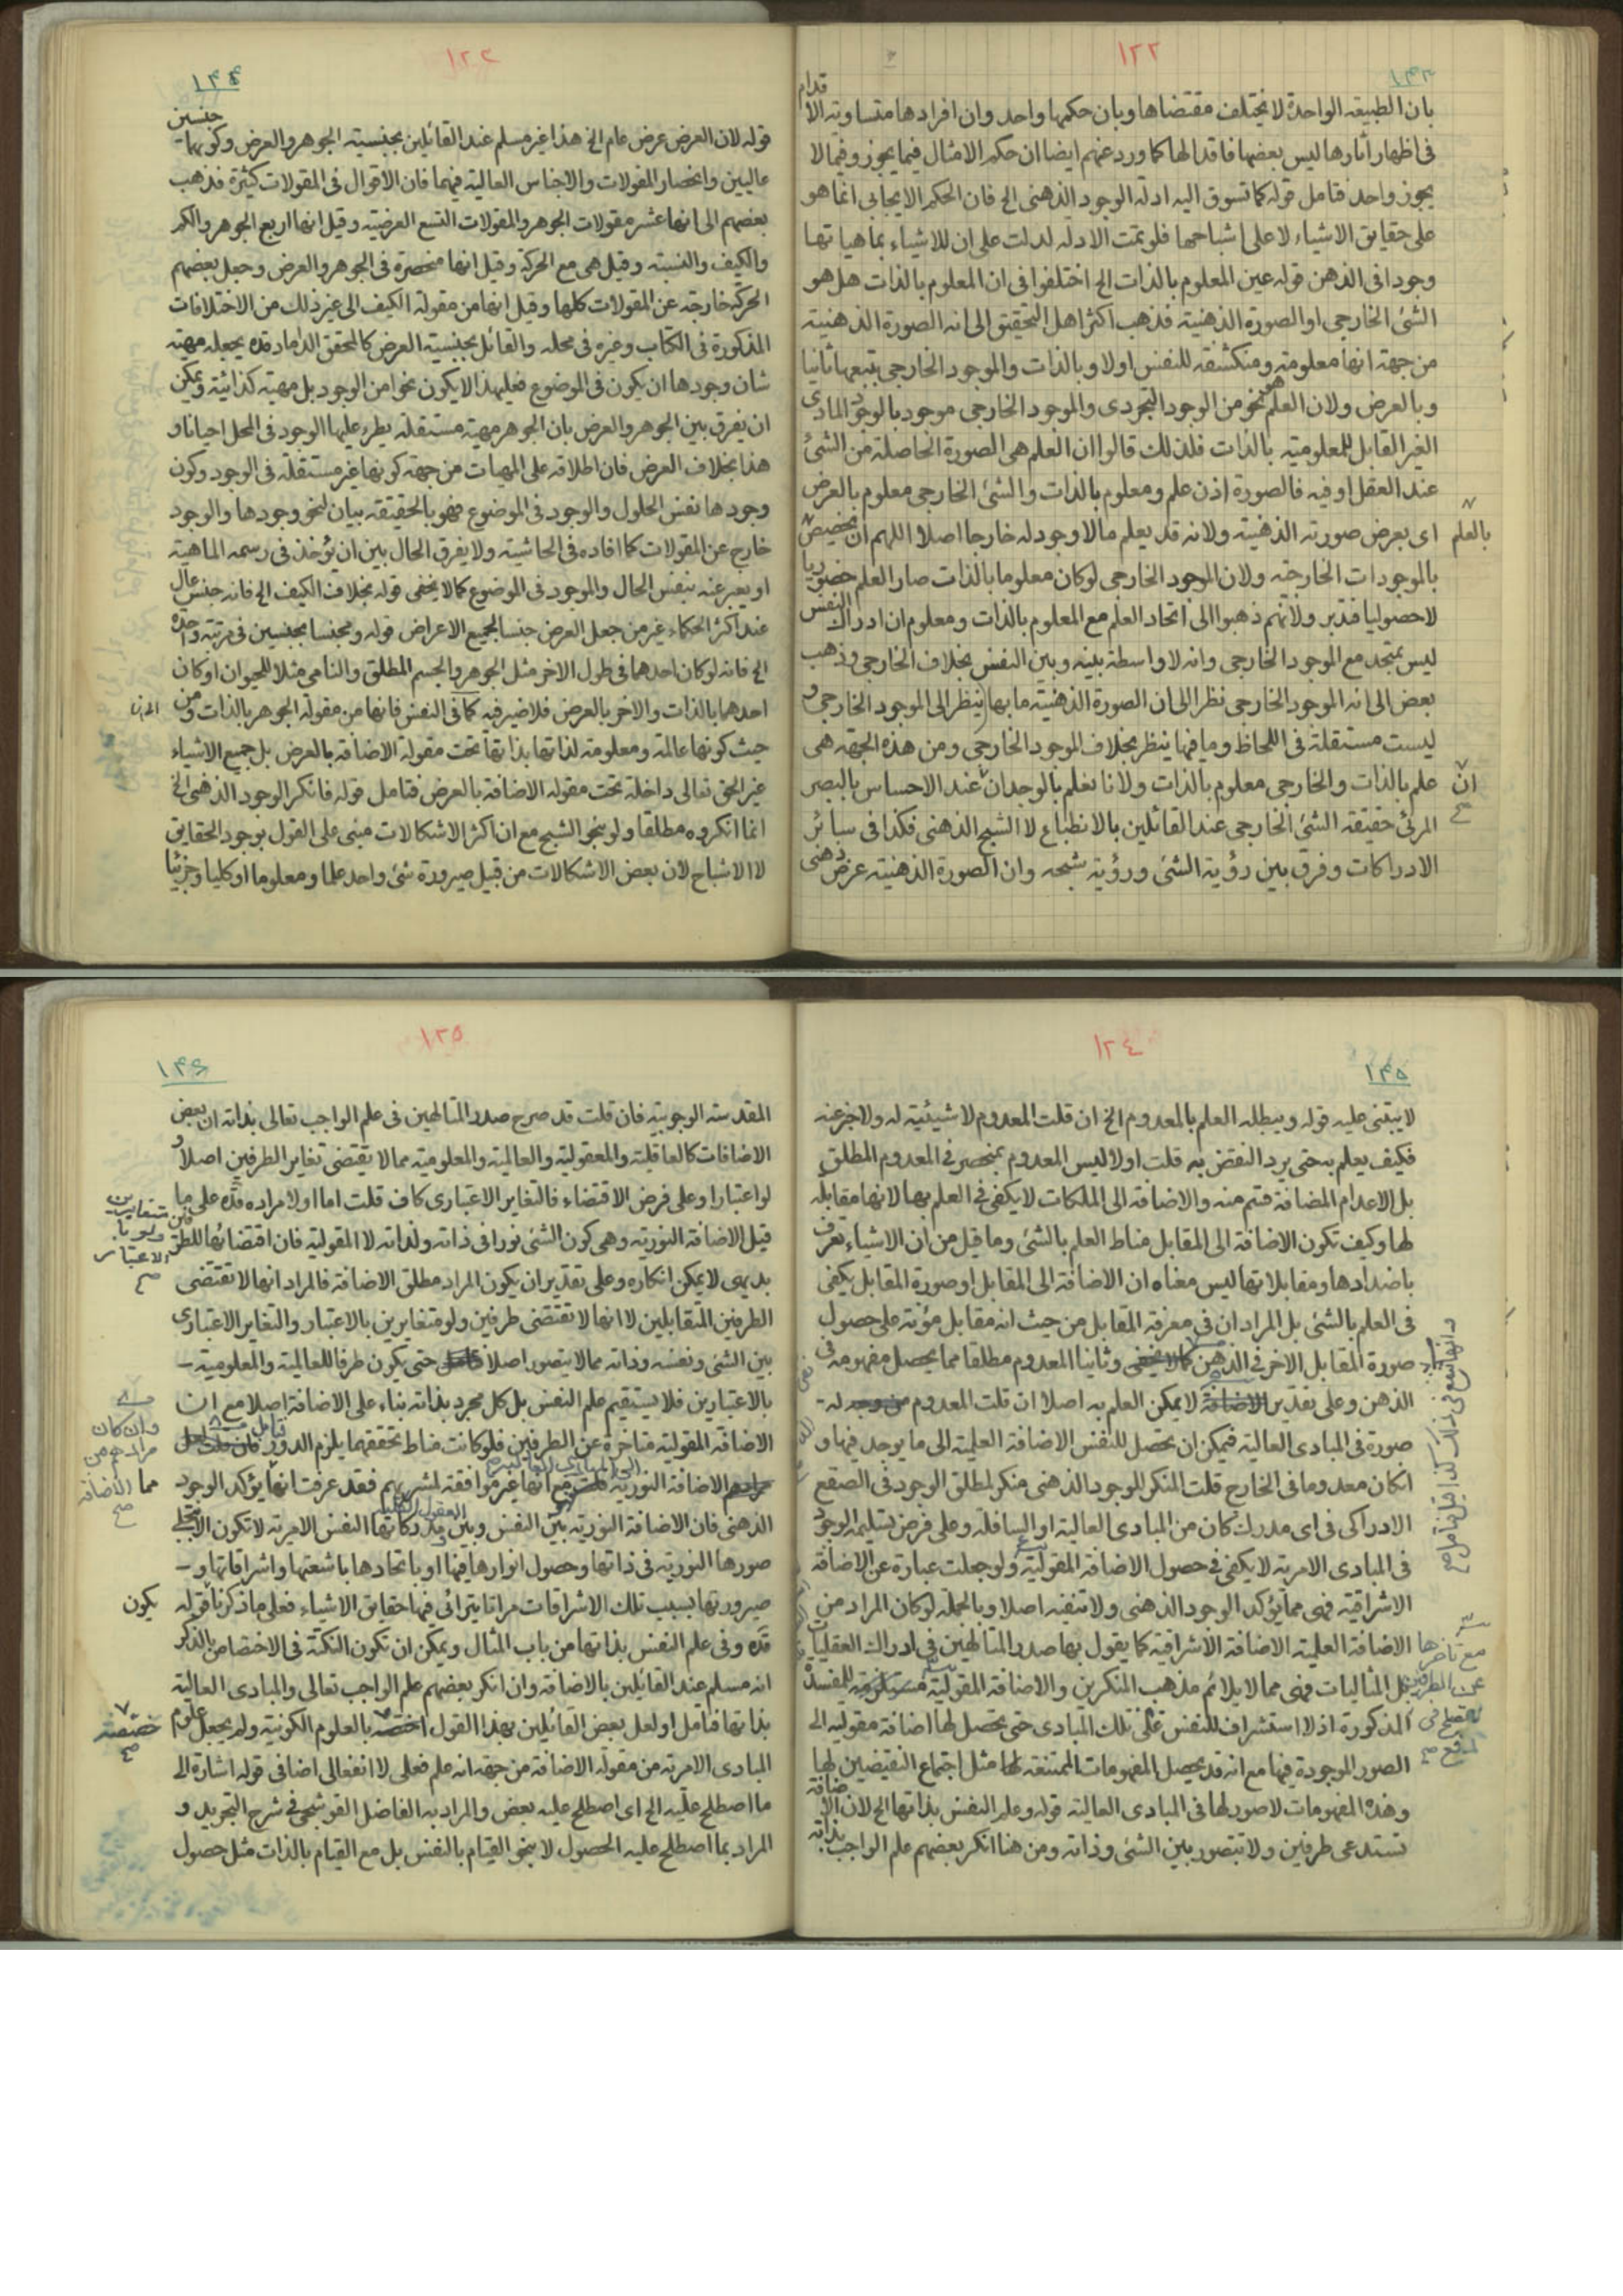 ١٢٢
١٤٣
بان الطبيعة الواحدة لا يختلف مقتضاها وبان حكمها واحد وان افرادها متساوية الاقدام
فى اظهار آثارها ليس بعضها فاقدا لها كما ورد عنهم ايضا ان حكم الامثال فيما يجوز وفيما لا
يجوز واحد فتامل قوله كما تسوق اليه ادلة الوجود الذهنى الخ فان الحكم الايجابى انما هو
على حقايق الاشياء لا على اشباحها فلو تمت الادله لدلت على ان للاشياء بماهياتها
وجودا فى الذهن قوله عين المعلوم بالذات الخ اختلفوا فى ان المعلوم بالذات هل هو
الشئ الخارجى او الصورة الذهنية فذهب اكثر اهل التحقيق الى انه الصورة الذهنية
من جهة انها معلومة ومنكشفة للنفس اولا وبالذات والموجود الخارجى بتبعها ثانيا
وبالعرض ولان العلم هو نحو من الوجود التجردى والموجود الخارجى موجود بالوجود المادى
الغير القابل للمعلومية بالذات فلذلك قالوا ان العلم هى الصورة الحاصلة من الشئ
عند العقل او فيه فالصورة اذن علم ومعلوم بالذات والشئ الخارجى معلوم بالعرض
اى بعرض صورته الذهنية ولانه قد يعلم مالا وجود له خارجا اصلا اللهم ان يخصص بالعلم
بالموجودات الخارجة ولان الموجود الخارجى لو كان معلوما بالذات صار العلم حضوريا
لا حصوليا فتدبر ولانهم ذهبوا الى اتحاد العلم مع المعلوم بالذات ومعلوم ان ادراك النفس
ليس بمتحد مع الموجود الخارجى وانه لا واسطة بينه وبين النفس بخلاف الخارجى وذهب
بعض الى انه الموجود الخارجى نظرا الى ان الصورة الذهنية ما بها ينظر الى الموجود الخارجى و
ليست مستقلة فى اللحاظ وما فيها ينظر بخلاف الموجود الخارجى ومن هذه الجهة هى
علم بالذات والخارجى معلوم بالذات ولانا نعلم بالوجدان عند الاحساس بالبصر ان
المرئى حقيقة الشئ الخارجى عند القائلين بالانطباع لا الشبح الذهنى فكذا فى سائر
الادراكات وفرق بين رؤية الشئ ورؤية شبحه وان الصورة الذهنية عرض ذهنى
١٢٣
١٤٤
قوله لان العرض عرض عام الخ هذا غير مسلم عند القائلين بجنسية الجوهر والعرض وكونهما جنسين
عاليين وانحصار المقولات والاجناس العالية فيهما فان الاقوال فى المقولات كثيرة فذهب
بعضهم الى انها عشر مقولات الجوهر والمقولات التسع العرضية وقيل انها اربع الجوهر والكم
والكيف والنسبة وقيل هى مع الحركة وقيل انها منحصرة فى الجوهر والعرض وجعل بعضهم
الحركة خارجة عن المقولات كلها وقيل انها من مقولة الكيف الى غير ذلك من الاختلافات
المذكورة فى الكتاب وغيره فى محله والقائل بجنسية العرض كالمحقق الداماد قده يجعله مهية
شان وجودها ان يكون فى الموضوع فعليهذا لا يكون نحوا من الوجود بل مهية كذائية ويمكن
ان يفرق بين الجوهر والعرض بان الجوهر مهية مستقلة يطرء عليها الوجود فى المحل احيانا و
هذا بخلاف العرض فان اطلاقه على المهيات من جهة كونها غير مستقلة فى الوجود وكون
وجودها نفس الحلول والوجود فى الموضوع فهو بالحقيقة بيان لنحو وجودها والوجود
خارج عن المقولات كما افاده فى الحاشية ولا يفرق الحال بين ان يؤخذ فى رسمه الماهية
او يعبر عنه بنفس الحال والموجود فى الموضوع كما لا يخفى قوله بخلاف الكيف الخ فانه جنس عال
عند اكثر الحكماء غير من جعل العرض جنسا لجميع الاعراض قوله ومجنسا بجنسين فى مرتبة واحدة
الخ فانه لو كان احدهما فى طول الاخر مثل الجوهر والجسم المطلق والنامى مثلا للحيوان او كان
احدهما بالذات والاخر بالعرض فلا ضير فيه كما فى النفس فانها من مقولة الجوهر بالذات ومن
حيث كونها عالمة ومعلومة لذاتها بذاتها تحت مقولة الاضافة بالعرض بل جميع الاشياء
غير الحق تعالى داخلة تحت مقولة الاضافة بالعرض فتامل قوله فانكر الوجود الذهنى الخ
انما انكروه مطلقا ولو بنحو الشبح مع ان اكثر الاشكالات مبنى على القول بوجود الحقايق
لا الاشباح لان بعض الاشكالات من قبيل صيرورة شئ واحد علما ومعلوما او كليا وجزئيا
١٢٤
١٤٥
لا يبتنى عليه قوله ويبطله العلم بالمعدوم الخ ان قلت المعدوم لا شيئية له ولا خبر عنه
فكيف يعلم به حتى يرد النقض به قلت اولا ليس المعدوم بمنحصر فى المعدوم المطلق
بل الاعدام المضافة قسم منه والاضافة الى الملكات لا يكفى فى العلم بها لانها مقابلة
لها وكيف تكون الاضافة الى المقابل مناط العلم بالشئ وما قيل من ان الاشياء تعرف
باضدادها ومقابلاتها ليس معناه ان الاضافة الى المقابل او صورة المقابل يكفى
فى العلم بالشئ بل المراد ان فى معرفة المقابل من حيث انه مقابل مؤنة على حصول
صورة المقابل الاخر فى الذهن وثانيا المعدوم مطلقا مما يحصل مفهومه فى
الذهن وعلى تقدير لا يمكن العلم به اصلا ان قلت المعدوم له
صورة فى المبادى العالية فيمكن ان تحصل للنفس الاضافة العلمية الى ما يوجد فيها و
انكان معدوما فى الخارج قلت المنكر للوجود الذهنى منكر لمطلق الوجود فى الصقع
الادراكى فى اى مدرك كان من المبادى العالية او السافلة وعلى فرض تسليمه الوجود
فى المبادى الامرية لا يكفى فى حصول الاضافة المقولية ولو جعلت عبارة عن الاضافة
الاشراقية فهى مما يؤكد الوجود الذهنى ولا تنفيه اصلا وبالجملة لو كان المراد من
الاضافة العلمية الاضافة الاشراقية كما يقول بها صدر المتالهين فى ادراك العقليات
بل المثاليات فهى مما لا يلائم مذهب المنكرين والاضافة المقولية للمفسدة
المذكورة اذ لا استشراف للنفس على تلك المبادى حتى تحصل لها اضافة مقولية الى
الصور الموجودة فيها مع انه قد يحصل المفهومات الممتنعة لها مثل اجتماع النقيضين لها
وهذه المفهومات لا صور لها فى المبادى العالية قوله وعلم النفس بذاتها الخ لان الاضافة
تستدعى طرفين ولا تتصور بين الشئ وذاته ومن هنا انكر بعضهم علم الواجب بذاته
١٢٥
١٤٦
المقدسة الوجوبية فان قلت قد صرح صدر المتالهين فى علم الواجب تعالى بذاته ان بعض
الاضافات كالعاقلية والمعقولية والعالمية والمعلومية مما لا يقتضى تغاير الطرفين اصلا و
لو اعتبارا وعلى فرض الاقتضاء فالتغاير الاعتبارى كاف قلت اما اولا مراده قده على ما
قيل الاضافة النورية وهى كون الشئ نورا فى ذاته ولذاته لا المقولية فان اقتضائها للطرفين
متغايرين ولو بالاعتبار صح
بديهى لا يمكن انكاره وعلى تقدير ان يكون المراد مطلق الاضافة فالمراد انها لا تقتضى
الطرفين المتقابلين لا انها لا تقتضى طرفين ولو متغايرين بالاعتبار والتغاير الاعتبارى
بين الشئ ونفسه وذاته مما لا يتصور اصلا حتى يكون طرفا للعالمية والمعلومية
بالاعتبارين فلا يستقيم علم النفس بل كل مجرد بذاته بناء على الاضافة اصلا مع ان
الاضافة المقولية متاخرة عن الطرفين فلو كانت مناط تحققهما يلزم الدور
وان كان مرادهم من الاضافة صح
الاضافة النورية مع انها غير موافقة لمشربهم فقد عرفت انها يؤكد الوجود
الذهنى فان الاضافة النورية بين النفس وبين مدركاتها النفس الامرية لا تكون الا
صورها النورية فى ذاتها وحصول انوارها فيها او باتحادها باشعتها واشراقاتها و
صيرورتها بسبب تلك الاشراقات مراتا يترائى فيها حقايق الاشياء فعلى ما ذكرنا يكون قوله
قده وفى علم النفس بذاتها من باب المثال ويمكن ان تكون النكتة فى الاختصاص بالذكر
انه مسلم عند القائلين بالاضافة وان انكر بعضهم علم الواجب تعالى والمبادى العالية
بذاتها فتامل او لعل بعض القائلين بهذا القول بالعلوم الكونية ولم يجعل علوم
المبادى الامرية من مقولة الاضافة من جهة انه علم فعلى لا انفعالى اضافى قوله اشارة الى
ما اصطلح عليه الخ اى اصطلح عليه بعض والمراد به الفاضل القوشجى فى شرح التجريد و
المراد بما اصطلح عليه الحصول لا بنحو القيام بالنفس بل مع القيام بالذات مثل حصول